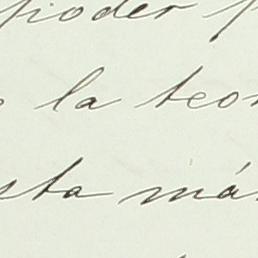 poder
la teor
sta má